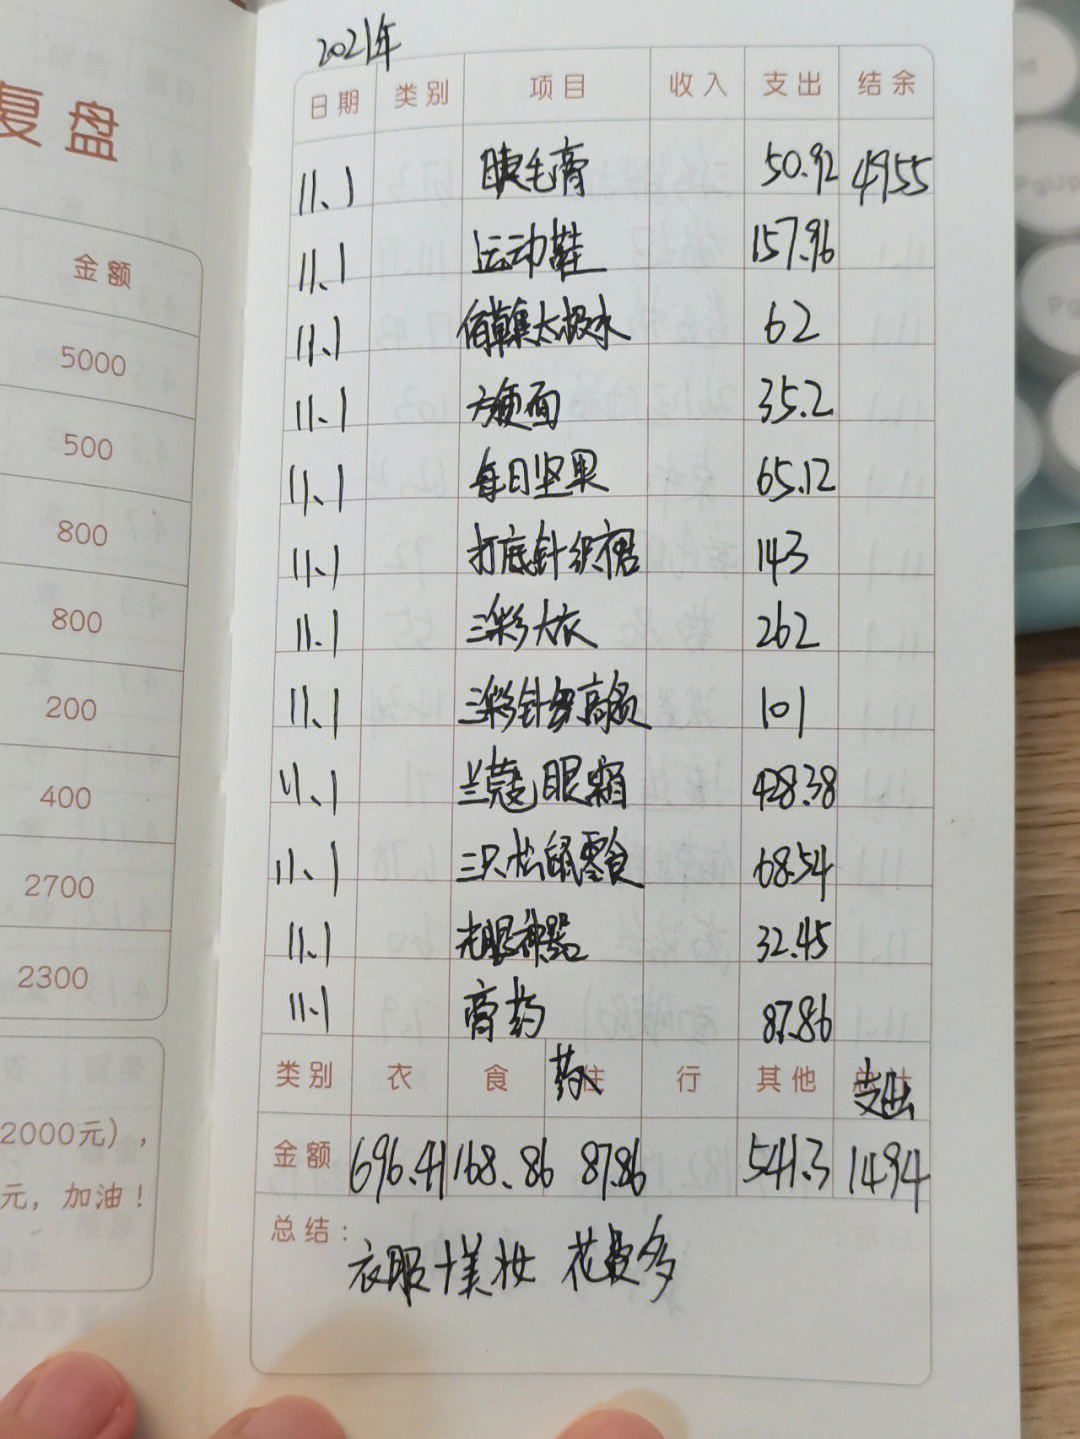 复盘
金额
5000
500
800
800
200
400
2700
2300
2000元），
元，加油！
2021年
日期 类别 项目 收入 支出 结余
11.1 睫毛膏 50.92 4955
11.1 运动鞋 157.96
11.1 佰草集太极水 62
11.1 方便面 35.2
11.1 每日坚果 65.12
11.1 打底针织裙 143
11.1 三彩大衣 262
11.1 三彩针织高领 101
11.1 兰蔻眼霜 428.38
11.1 三只松鼠零食 68.54
11.1 神器 32.45
11.1 膏药 87.86
类别 衣 食 药 行 其他 支出
金额 696.41 168.86 87.86 541.3 1494
总结：
衣服+美妆 花费多